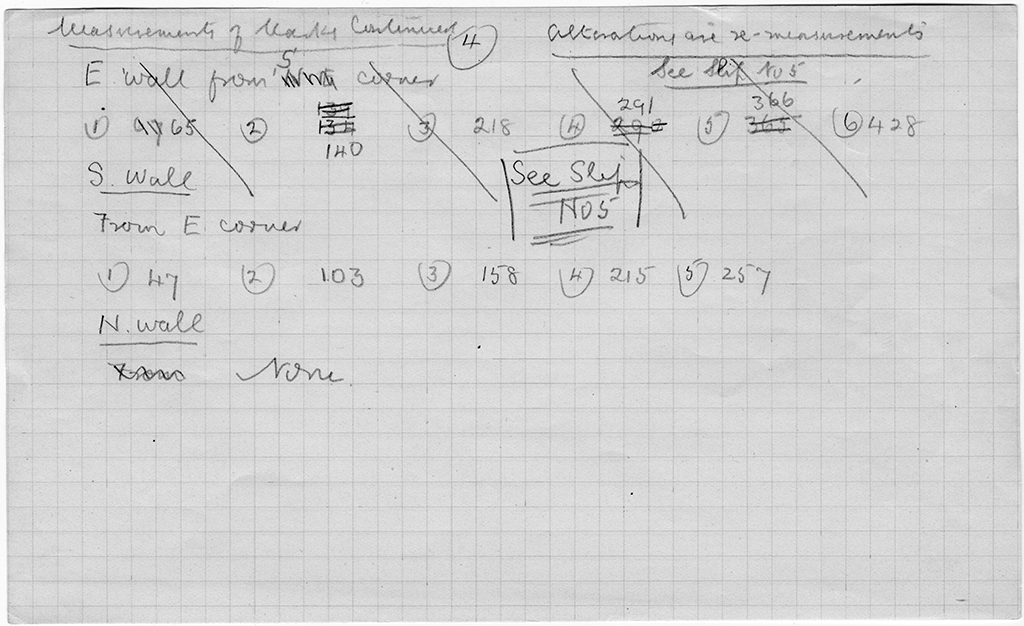 Measurements of Marks Continued ④ Alterations are re-measurements
See Slip No 5
E. Wall from S corner
① 65 ② 140 ③ 218 ④ 291 ⑤ 366 ⑥ 428
S. Wall
See Slip
No 5
From E corner
① 47 ② 103 ③ 158 ④ 215 ⑤ 257
N. Wall
From None